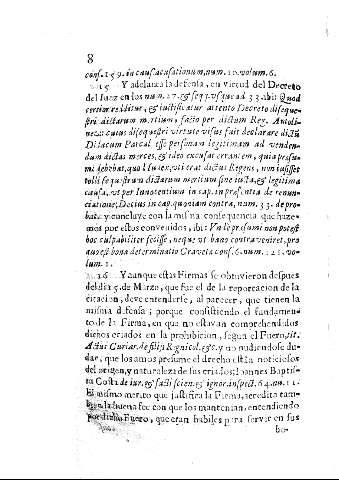 8
conf. 159. in causf. acusationum, num. 10. volum. 6.
2.15 Y adelanta la defensa, en virtud del Decreto
del Juez en los num. 27. & seqq. usque ad 33. ibi: Quod
certior redditur, & iustificatur attento Decreto diseque-
stri dictarum mertium, facto per dictum Rey. Antoli-
nez: cuius disequestri virtute visus fuit declarare dictū
Didacum Pascal esse personam legitimam ad venden-
dum dictas merces, & ideo excusat errantem, quia præsu-
mi debebat, quod Iudex, uti erat dictus Regens, non iusisset
tolli sequestrum dictarum mertium sine iusta, & legitima
causa, ut per Innocentium in cap. in præsentia de renun-
ciatione; Decius in cap. quoniam contra, num. 33. de pro-
bat. y concluye con la misma consequencia que haze-
mos por estos convenidos, ibi: Unde præsumi non potest
hos culpabiliter fecisse, neque ut bano contraveniret, pro
qua est bona determinatio Craveta cons. 6. num. 125. vo-
lum. 1.
2.16 Y aunque estas Firmas se obtuvieron despues
del dia 5. de Março, que fue el de la reportacion de la
citacion, deve entenderse, al parecer, que tienen la
misma defensa; porque consistiendo el fundamen-
to de la Firma, en que no estavan comprehendidos
dichos criados en la prohibicion, segun el Fuero, tit.
Actus Curiar. de filijs Regnicol. &c. y no pudiendose du-
dar, que los amos presume el derecho están noticiosos
del origen, y naturaleza de sus criados; Ioannes Baptis-
ta Costa de iur. & facti scien. & ignor. inspect. 64. num. 11.
El mismo merito que justifica la Firma, acredita tam-
bien la buena fee con que los mantenian, entendiendo
por dicho Fuero, que eran habiles para servir en sus
bo-